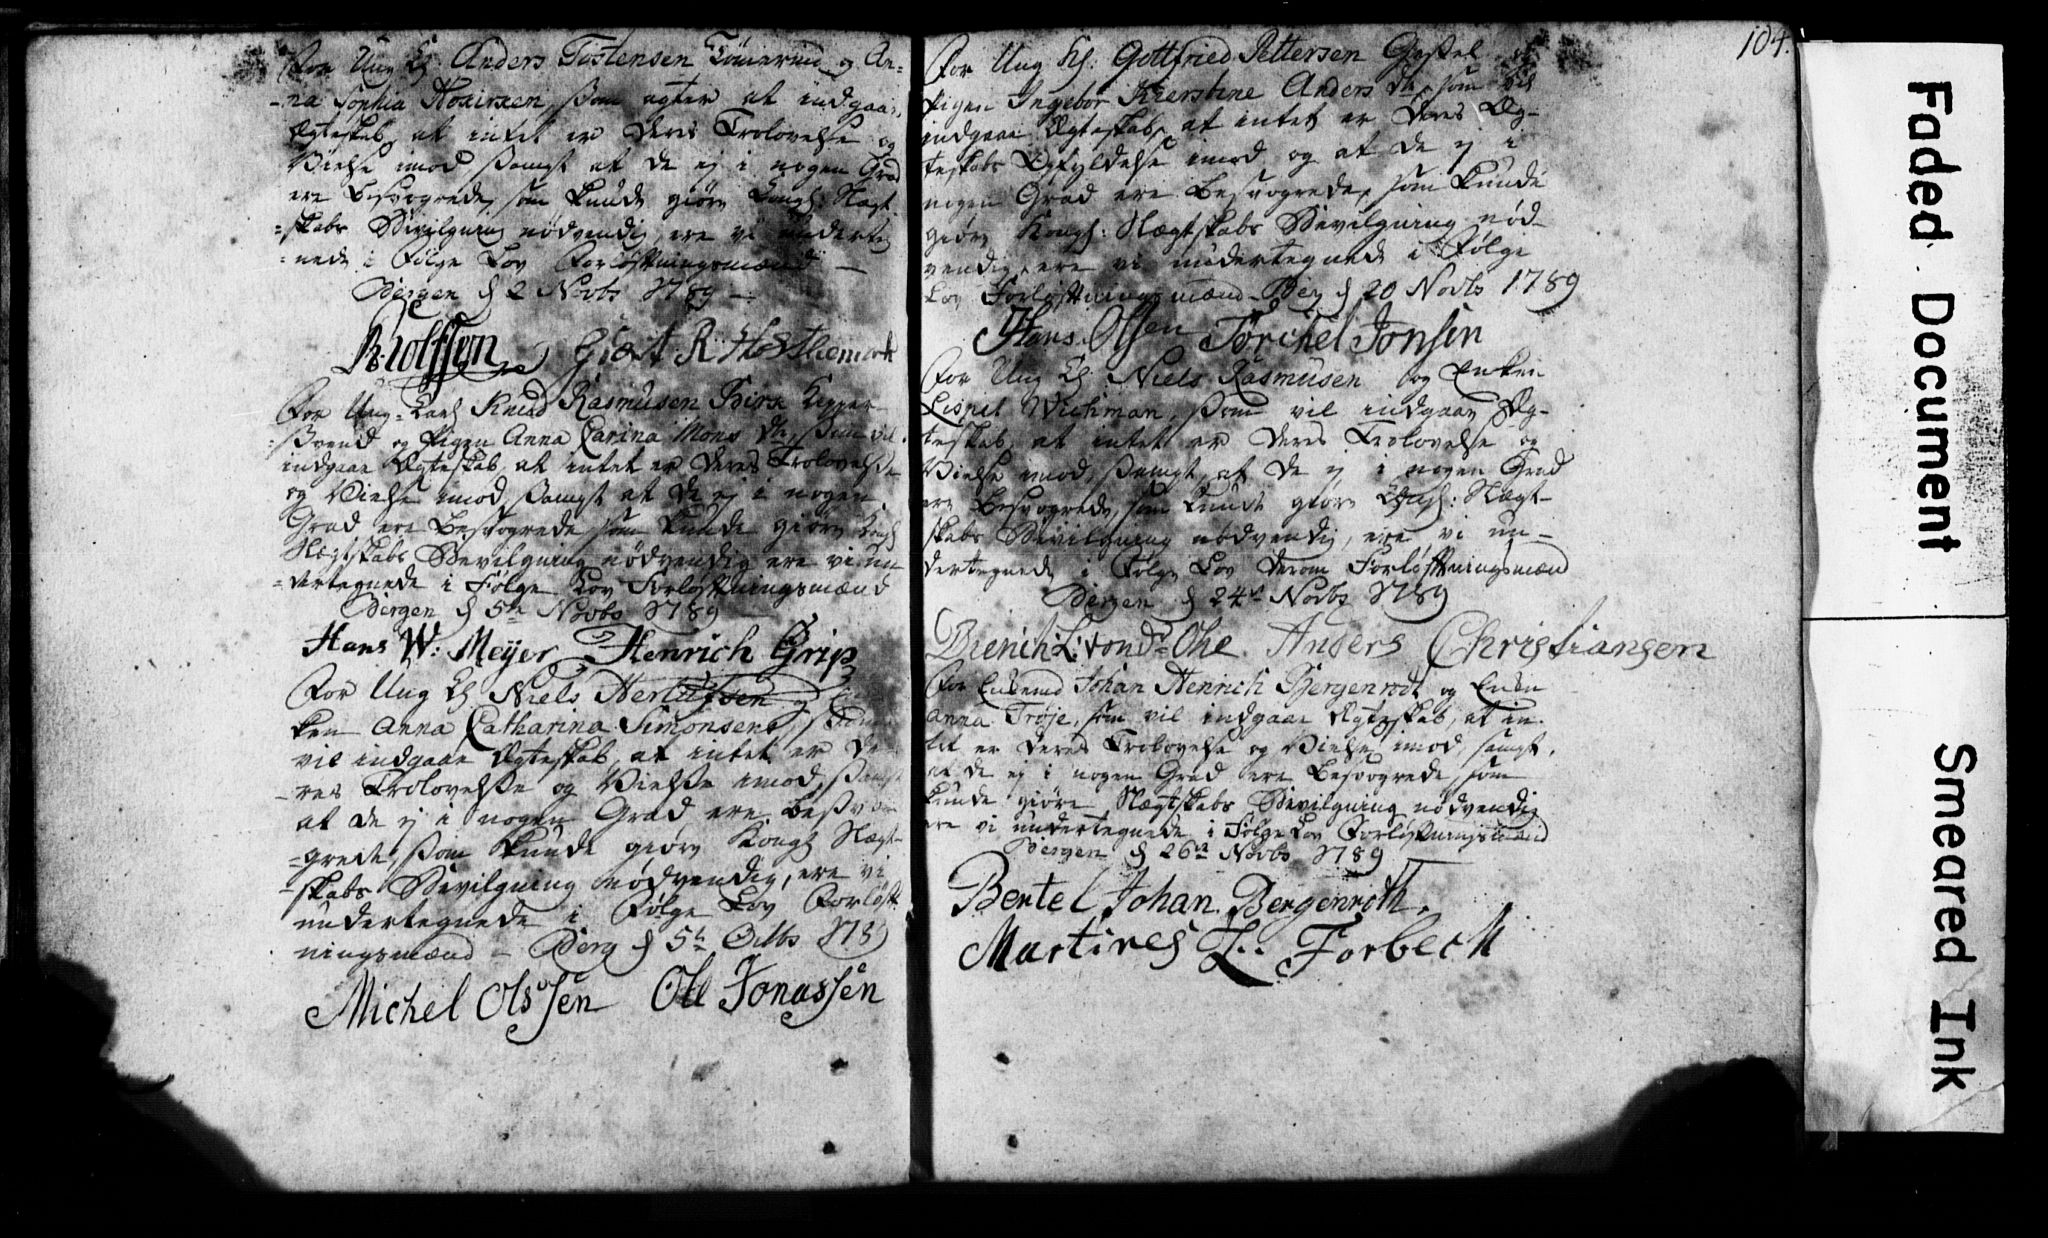 For Ung K: Anders Tostensen Tømerud og An=
=na Sophia, som agter at indgaae
Ægteskab, at intet er deres Trolovelse og
Vielse imod, samt at de ej i nogen Grad
ere Besvogrede, som kunde giøre Kongl: Slægt
=skabs Bevilgning nødvendig, ere vi underteg
=nede i Følge Lov Forløftningsmænd
Bergen d 2 Novbr 1789
Rolfsen Giert R
For Ung=Karl Knud Rasmusen Birk
=svend og Pigen Anna Carina Mons dr, som vil
indgaae Ægteskab, at intet er deres Trolovelse
og Vielse imod, samt at de ej i nogen
Grad ere Besvogrede som kunde giøre Kongl
Slægtskabs Bevilgning nødvendig ere vi un
=dertegnede i Følge Lov Forløftningsmænd
Bergen d 5te Novbr 1789
Hans W: Meyer Henrich Grip
For Ung K Niels Herlufsen og
ken Anna Catharina Simonsens, som
vil indgaae Ægteskab, at intet er De
=res Trolovelse og Vielse imod, samt
at de ej i nogen Grad ere besvo
=grede, som kunde giøre Kongl Slægt-
=skabs Bevilgning nødvendig, ere vi
undertegnede i Følge Lov Forløft
ningsmænd - Berg d 5t Octbr 1789
Michel Olsen Ole Jonassen
104.
For Ung K: Gottfried Pettersen Gastel og
Pigen Ingebor Kierstine Anders dr, som vil
indgaae Ægteskab, at intet er deres Æg-
teskabs Opfyldelse imod, og at de ej i
nogen Grad ere Besvogrede, som kunde
giøre Kongl: Slægtskabs Bevilgning nød-
vendig, ere vi undertegnede i Følge
Lov Forløftningsmænd Berg d 20 Novbr 1789
Hans Olsen Torchel Jonsen
For Ung K Niels Rasmusen og Enken
Lispet Wichman, som vil indgaae Æg-
teskab, at intet er deres Trolovelse og
Vielse imod, samt, at de ej i nogen Grad
ere Besvogrede, som kunde giøre Kongl: Slægt-
skabs Bevilgning nødvendig, ere vi un-
dertegnede i Følge Lov derom Forløftningsmænd
Bergen d 24t Novbr 1789
Anders Christiansen
For Enkemd Johan Henrich Bergenrodt og Enken
Anna Trøje, som vil indgaae Ægteskab, at in-
tet er deres Trolovelse og Vielse imod, samt,
at de ej i nogen Grad ere Besvogrede, som
kunde giøre Slægtskabs Bevilgning nødvendig
ere vi undertegnede i Følge Lov Forløftningsmænd
Bergen d 26t Novbr 1789
Bertel Johan Bergenroth.
Martines L: Forbech
Faded Document
Smeared Ink